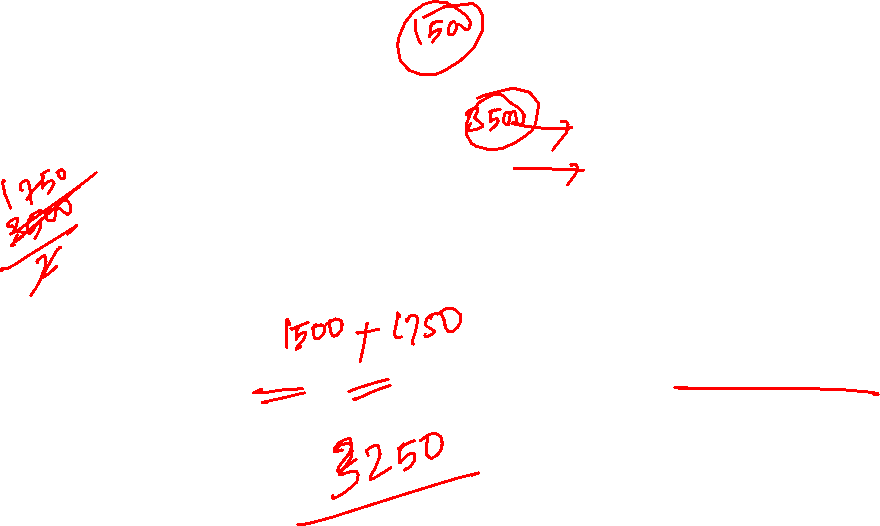 1500
3500
1750
3500
2
1500 + 1750
3250